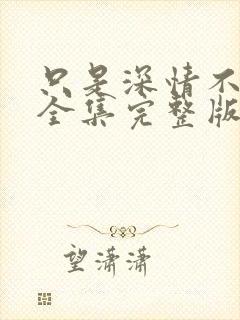 只是深情不
全集完整版
望潇潇